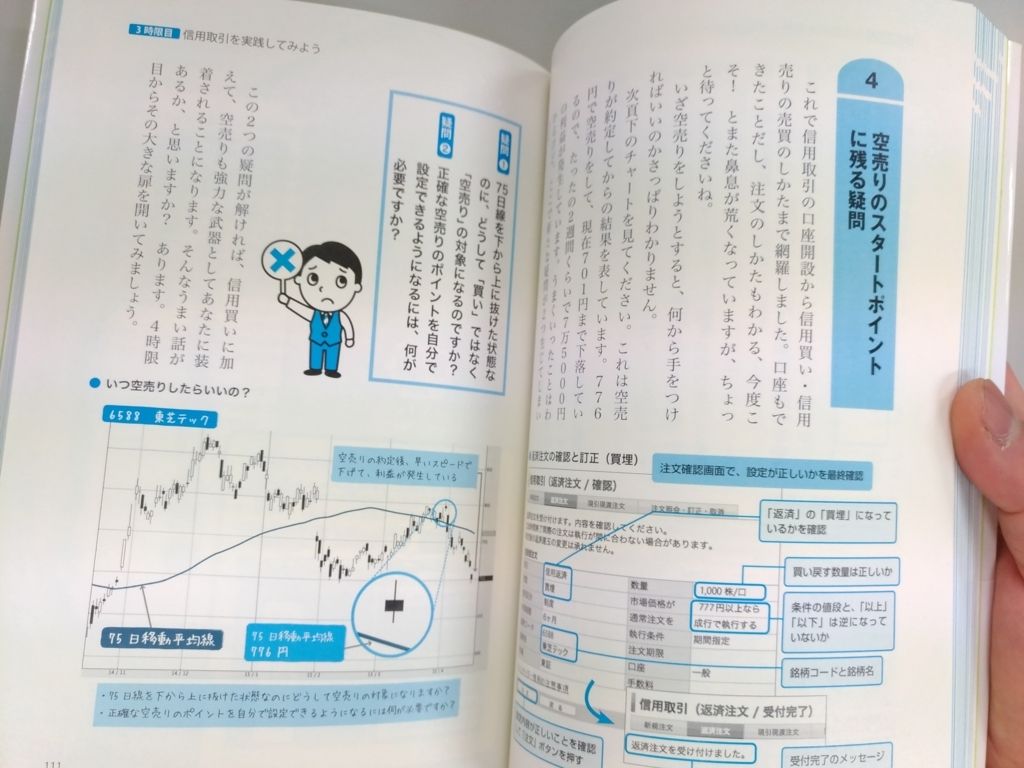 4
空売りのスタートポイント
に残る疑問
これで信用取引の口座開設から信用買い・信用
売りの売買のしかたまで網羅しました。口座もで
きたことだし、注文のしかたもわかる、今度こ
そ！ とまた鼻息が荒くなっていますが、ちょっ
と待ってくださいね。
いざ空売りをしようとすると、何から手をつけ
ればいいのかさっぱりわかりません。
次頁下のチャートを見てください。これは空売
りが約定してからの結果を表しています。776
円で空売りをして、現在701円まで下落してい
るので、たったの2週間くらいで7万5000円
の利益が発生しています。うまくいったことはわ
返済注文の確認と訂正（買埋）
注文確認画面で、設定が正しいかを最終確認
信用取引（返済注文 / 確認）
返済注文
現引現渡注文
注文照会・訂正・取消
「返済」の「買埋」になって
いるかを確認
信用返済
買埋
制度
6ヶ月
6588
東芝テック
東証
数量
1,000 株/口
市場価格が
777 円以上なら
通常注文を
成行で執行する
執行条件
期間指定
注文期限
口座
一般
手数料
買い戻す数量は正しいか
条件の値段と、「以上」
「以下」は逆になって
いないか
銘柄コードと銘柄名
内容が正しいことを確認
して「注文」ボタンを押す
信用取引（返済注文 / 受付完了）
新規注文
返済注文
現引現渡注文
返済注文を受け付けました。
受付完了のメッセージ
3時限目 信用取引を実践してみよう
疑問❶ 75日線を下から上に抜けた状態な
のに、どうして「買い」ではなく
「空売り」の対象になるのですか？
疑問❷ 正確な空売りのポイントを自分で
設定できるようになるには、何が
必要ですか？
この2つの疑問が解ければ、信用買いに加
えて、空売りも強力な武器としてあなたに装
着されることになります。そんなうまい話が
あるか、と思いますか？ あります。4時限
目からその大きな扉を開いてみましょう。
● いつ空売りしたらいいの？
6588 東芝テック
空売りの約定後、早いスピードで
下げて、利益が発生している
75日移動平均線
75日移動平均線
776円
14/11
14/12
15/1
15/2
15/3
15/4
・75日線を下から上に抜けた状態なのにどうして空売りの対象になりますか？
・正確な空売りのポイントを自分で設定できるようになるには何が必要ですか？
111